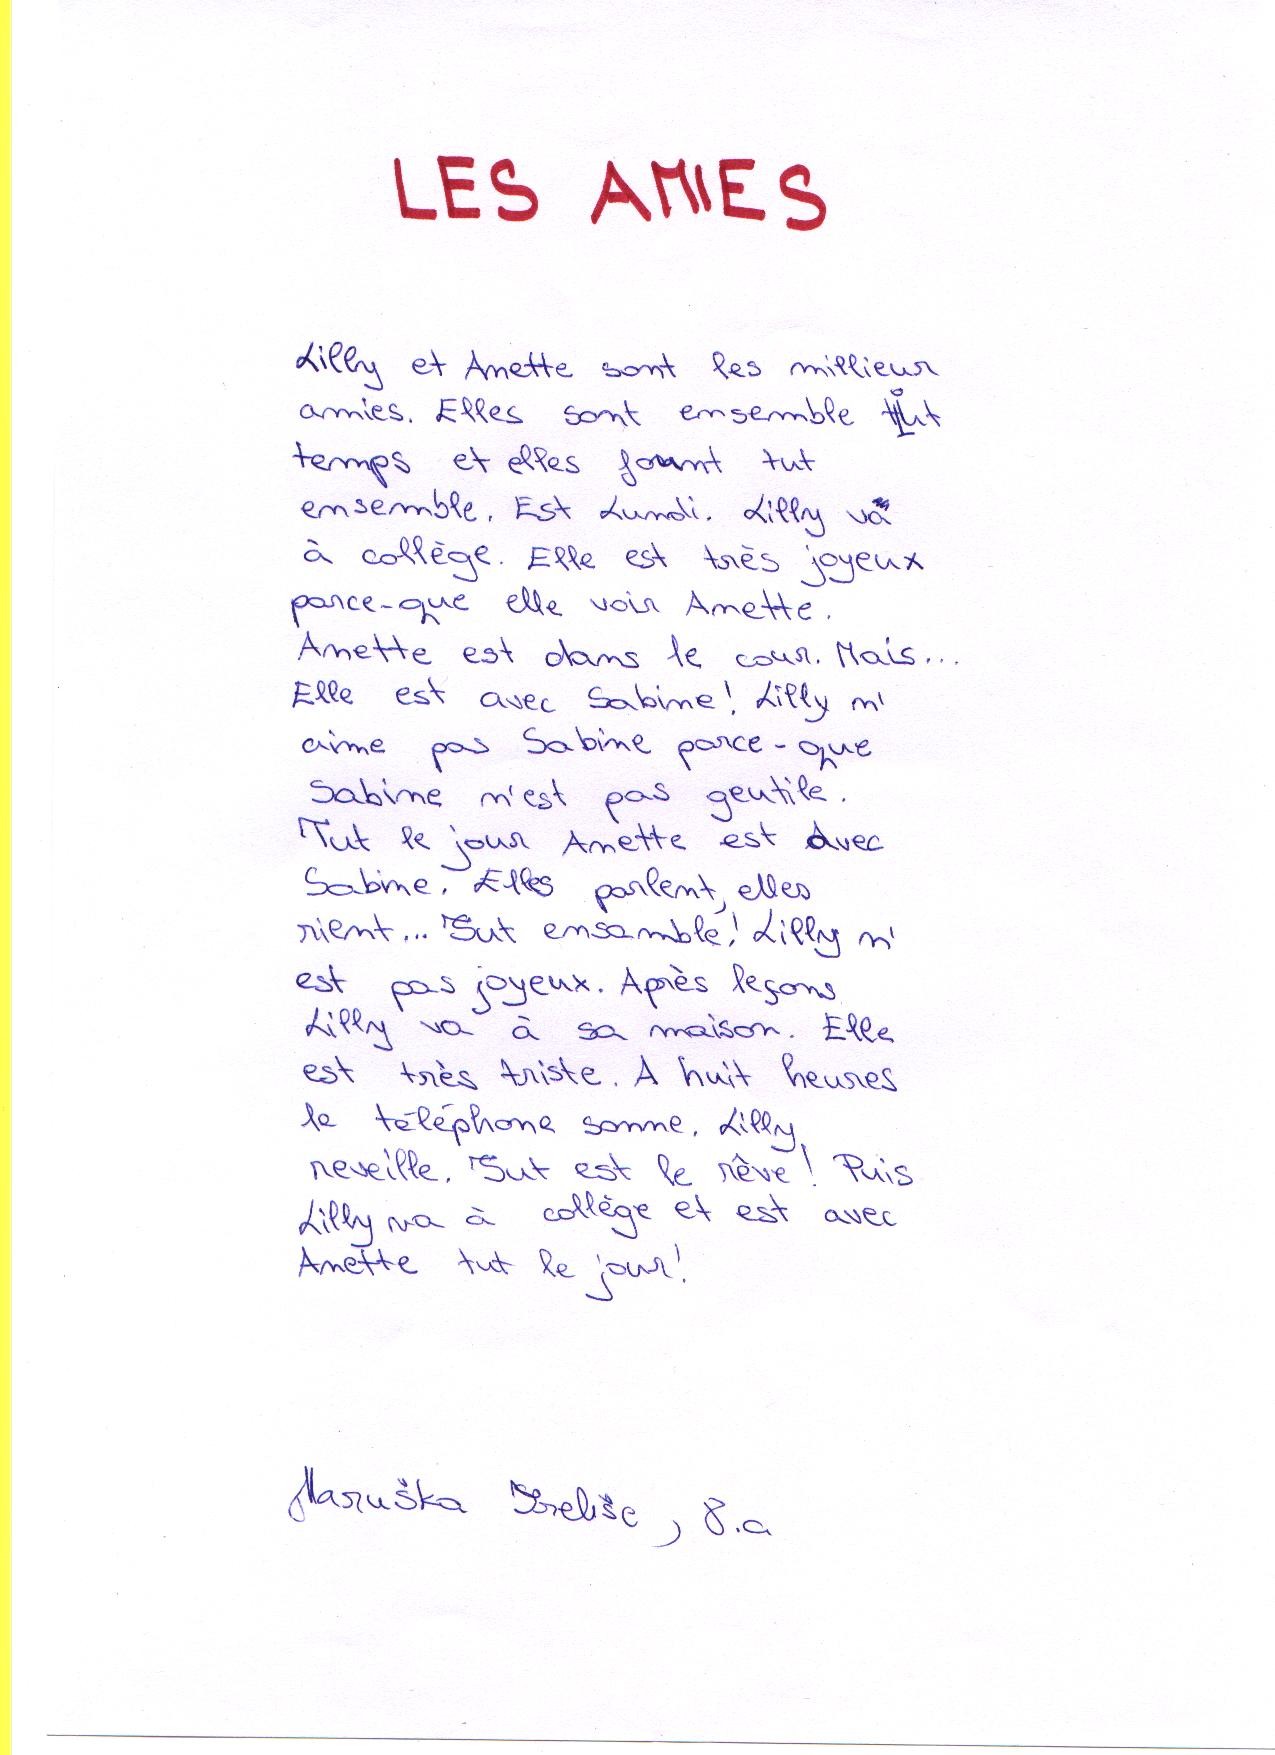 LES AMIES
Lilly et Anette sont les millieur
amies. Elles sont ensemble tut
temps et elles fount tut
ensemble. Est Lundi. Lilly va
à collège. Elle est très joyeux
parce-que elle voir Anette.
Anette est dans le cour. Mais...
Elle est avec Sabine! Lilly n'
aime pas Sabine parce-que
Sabine n'est pas gentile.
Tut le jour Anette est avec
Sabine. Elles parlent, elles
rient... Tut ensamble! Lilly n'
est pas joyeux. Après leçons
Lilly va à sa maison. Elle
est très triste. A huit heures
le téléphone sonne. Lilly
reveille. Tut est le rêve! Puis
Lilly va à collège et est avec
Anette tut le jour!
Maruška , 8.a